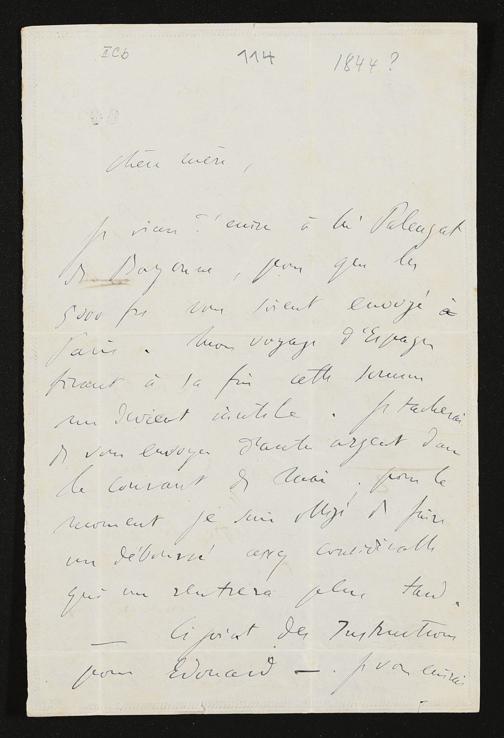 ICb 114 1844?
chère mère,
Je viens d'écrire à Mr Palengat
de Bayonne, pour que les
5000 frs vous soient envoyé à
Paris. Mon voyage d'Espagne
tirant à sa fin cette somme
me devient inutile. Je tacherai
de vous envoyer d'autre argent dans
le courant de Mai, pour le
moment je suis obligé de faire
un déboursé assez considérable
qui me rentrera plus tard.
— Ci joint des Instructions
pour Edouard —. Je vous